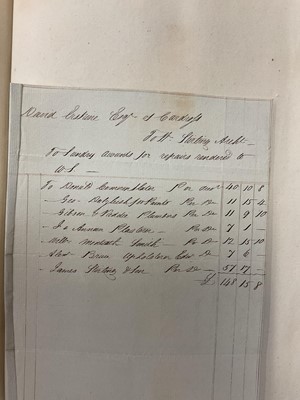 David Erskine Esqr of Cardross
To Wm Stirling Archt
To Sundry accounts for repairs rendered to
W.S
To Danl Cunningham Per amt 40 10 8
Geo Dalgleish for Paints Per Do 11 15 4
Gibson & Peddie Plumbers Per Do 11 9 10
Jas Annan Plasterer Per Do 7 1
Smith Per Do 12 15 10
Alexr Bean Upholsterer Edinr Do 7 6
James Stirling & Son Per Do 57 17
£ 148 15 8